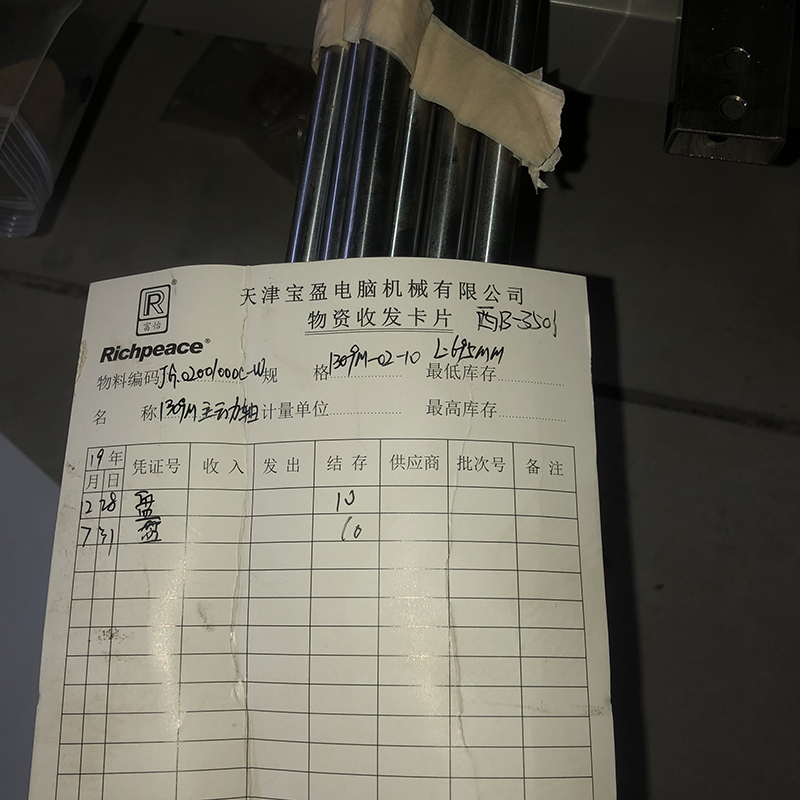 R®
富怡
Richpeace®
天津宝盈电脑机械有限公司
物资收发卡片 西B-3501
物料编码 JG.02001000C-W 规格 1309M-02-10 L-695mm 最低库存
名称 1309M主动轴 计量单位 最高库存
19年 凭证号 收入 发出 结存 供应商 批次号 备注
月 日
12 28 盘 10
7 31 盘 10